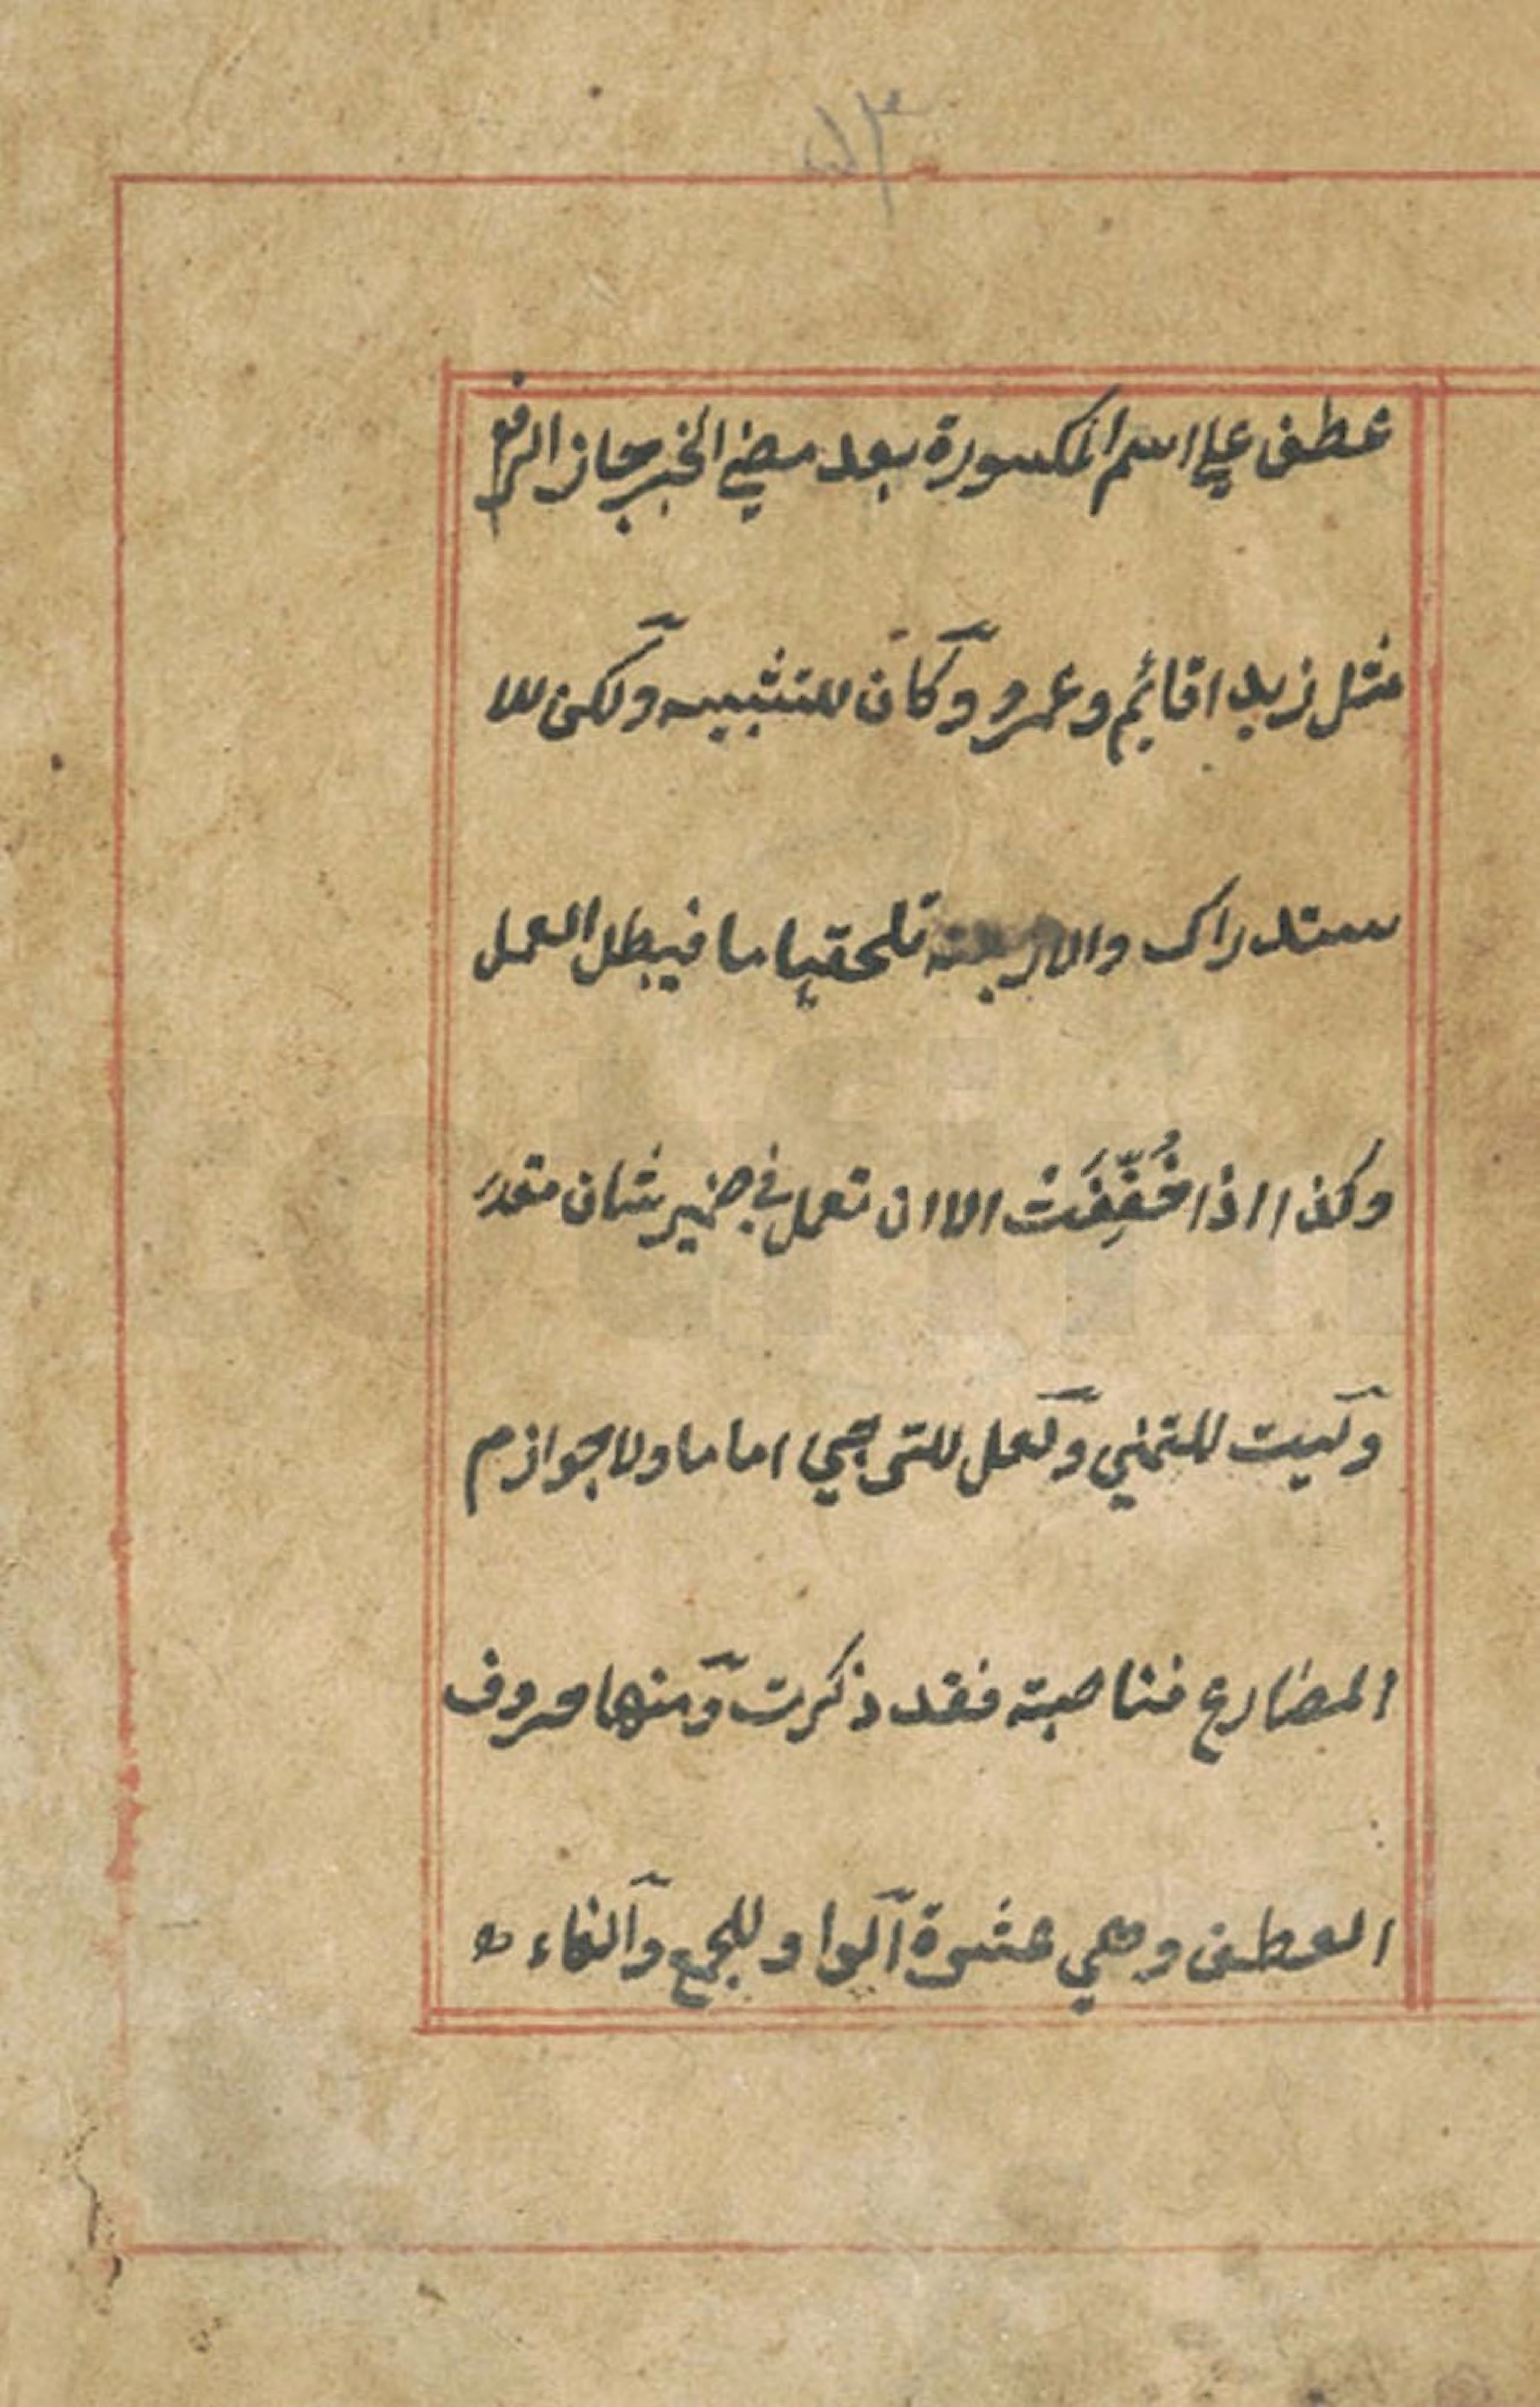 عطف علی اسم المكسورة بعد مضي الخبر جاز الرفع
مثل زيدا قائم وعمرو وكان للتشبيه ولكن للا
ستدراك والاربعة تلحقها ما فيبطل العمل
وكذا اذا خُفِّفَتْ الا ان تعمل في ضمير شان مقدر
وليت للتمني ولعل للترجي اما ما ولا جوازم
المضارع فناصبته فقد ذكرت ومنها حروف
العطف وهي عشرة الواو للجمع والفاء له